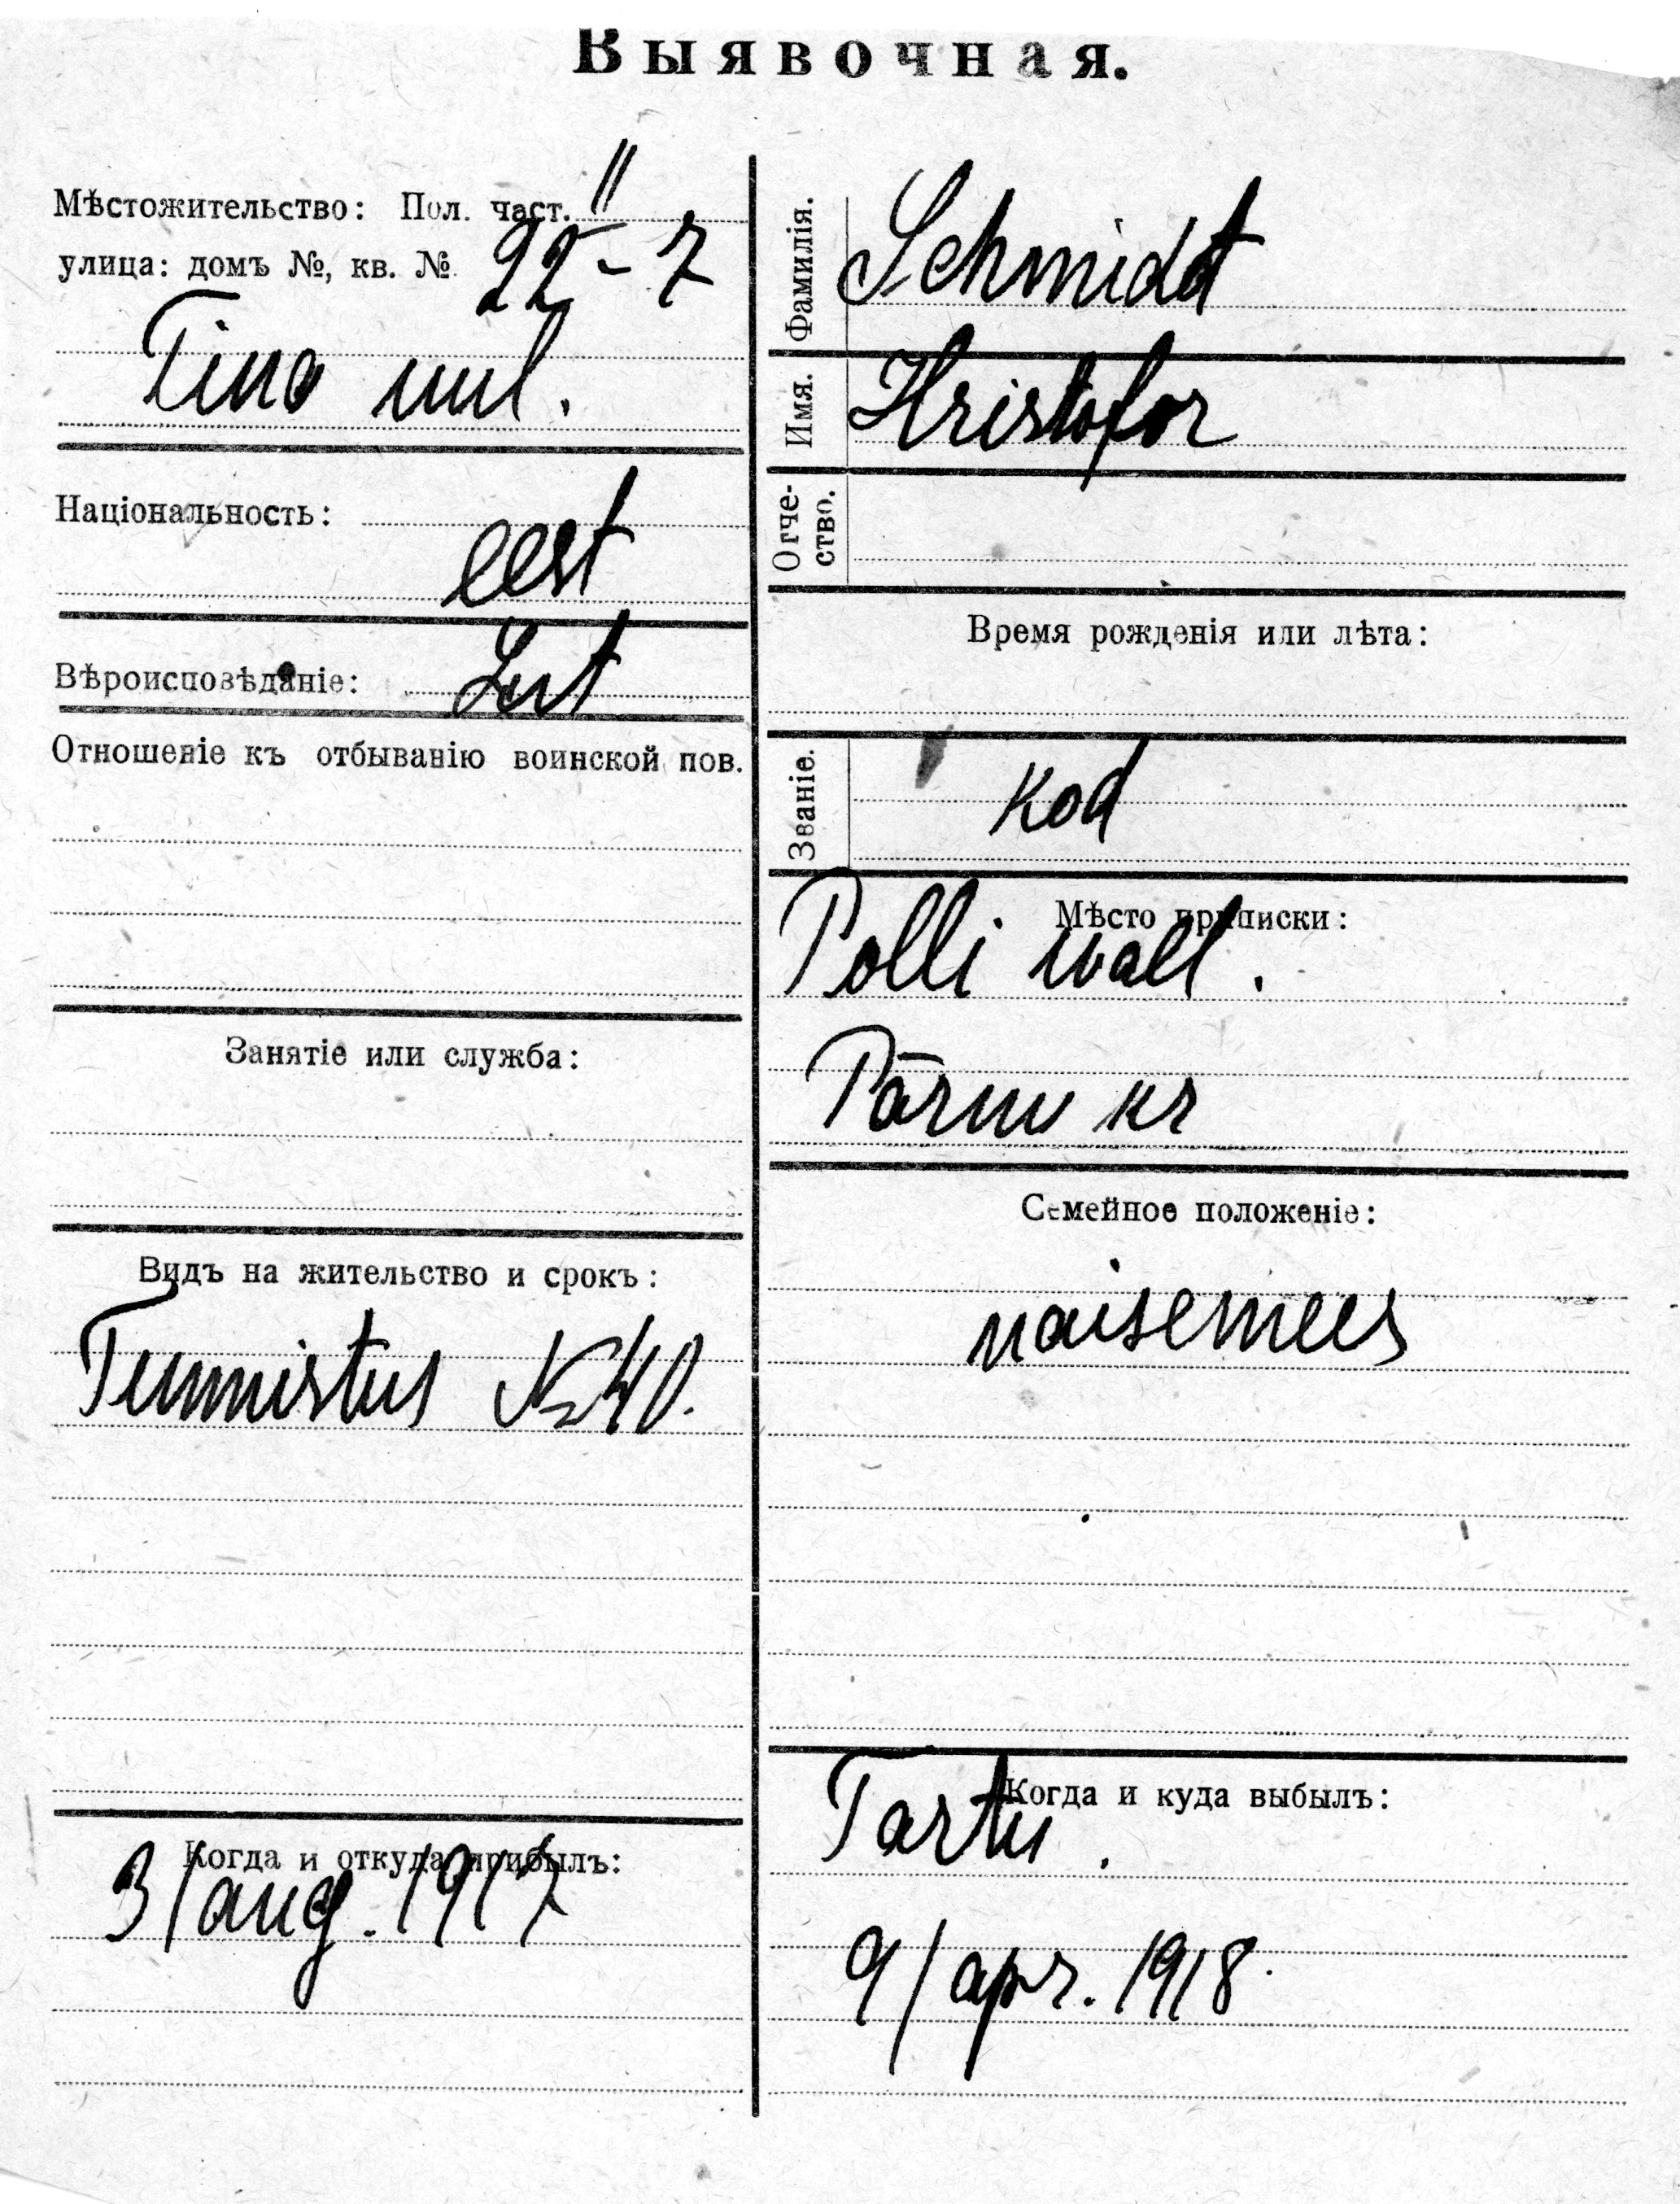 Выявочная.
Мѣстожительство: Пол. част. II
улица: домъ №, кв. № 22-7
Tina uul.
Національность:
eest
Вѣроисповѣданіе: Lut
Отношеніе къ отбыванію воинской пов.
Занятіе или служба:
Видъ на жительство и срокъ:
Tunnistus № 40.
Когда и откуда прибылъ:
3/aug. 1917
Фамилія. Schmidt
Имя. Hristofor
Отче-
ство.
Время рожденія или лѣта:
Званіе. kod
Мѣсто приписки:
Polli wall.
Pärnu kr
Семейное положеніе:
naisemees
Когда и куда выбылъ:
Tartu.
9/apr. 1918.